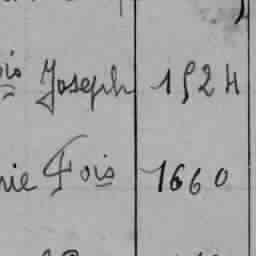 ois Joseph 1524
rie Fois 1660